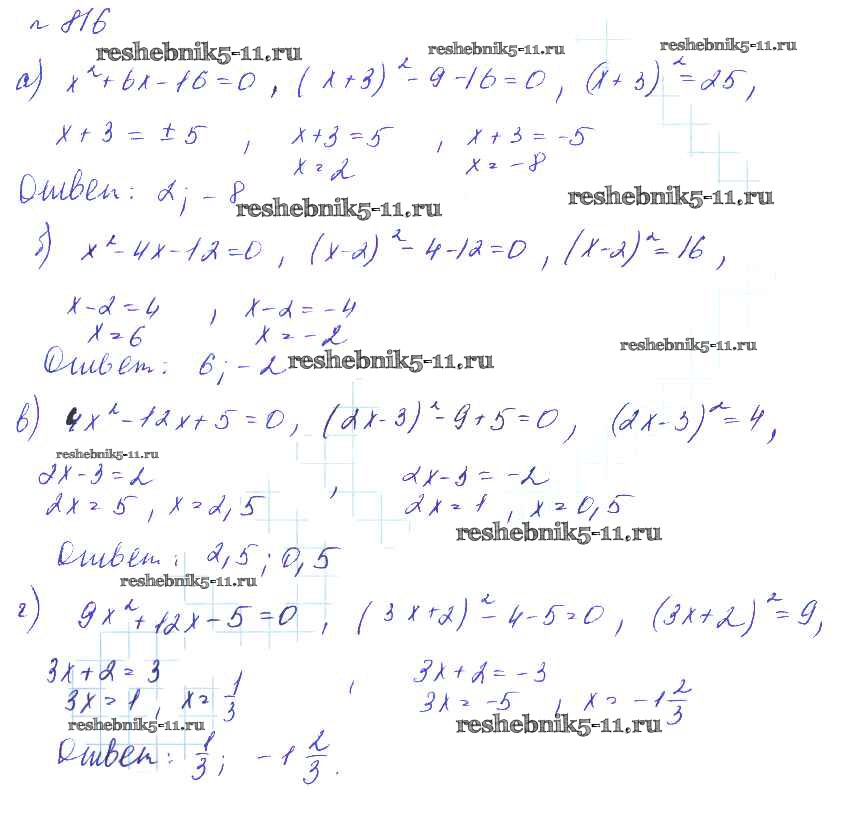 № 816
reshebnik5-11.ru reshebnik5-11.ru reshebnik5-11.ru
а) x² + 6x - 16 = 0 , (x + 3)² - 9 - 16 = 0 , (x + 3)² = 25 ,
x + 3 = ± 5 , x + 3 = 5 , x + 3 = -5
x = 2 x = -8
Ответ: 2 ; -8
reshebnik5-11.ru reshebnik5-11.ru
б) x² - 4x - 12 = 0 , (x - 2)² - 4 - 12 = 0 , (x - 2)² = 16 ,
x - 2 = 4 , x - 2 = -4
x = 6 x = -2
reshebnik5-11.ru
Ответ: 6 ; -2 reshebnik5-11.ru
в) 4x² - 12x + 5 = 0 , (2x - 3)² - 9 + 5 = 0 , (2x - 3)² = 4 ,
reshebnik5-11.ru
2x - 3 = 2 , 2x - 3 = -2
2x = 5 , x = 2,5 2x = 1 , x = 0,5
reshebnik5-11.ru
Ответ: 2,5 ; 0,5
reshebnik5-11.ru
г) 9x² + 12x - 5 = 0 , (3x + 2)² - 4 - 5 = 0 , (3x + 2)² = 9 ,
3x + 2 = 3 , 3x + 2 = -3
3x = 1 , x = 1/3 3x = -5 , x = -1 2/3
reshebnik5-11.ru reshebnik5-11.ru
Ответ: 1/3 ; -1 2/3 .